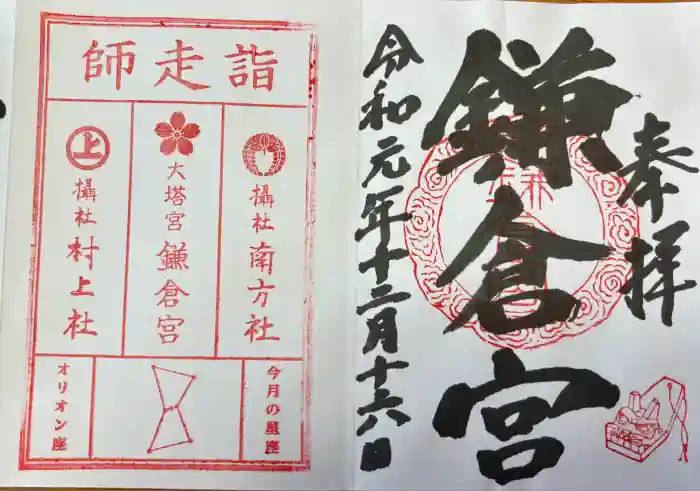 奉拝
鎌倉宮
令和元年十二月十六日
詣走師
攝社 南方社
大塔宮 鎌倉宮
上
攝社 村上社
今月の星座
オリオン座